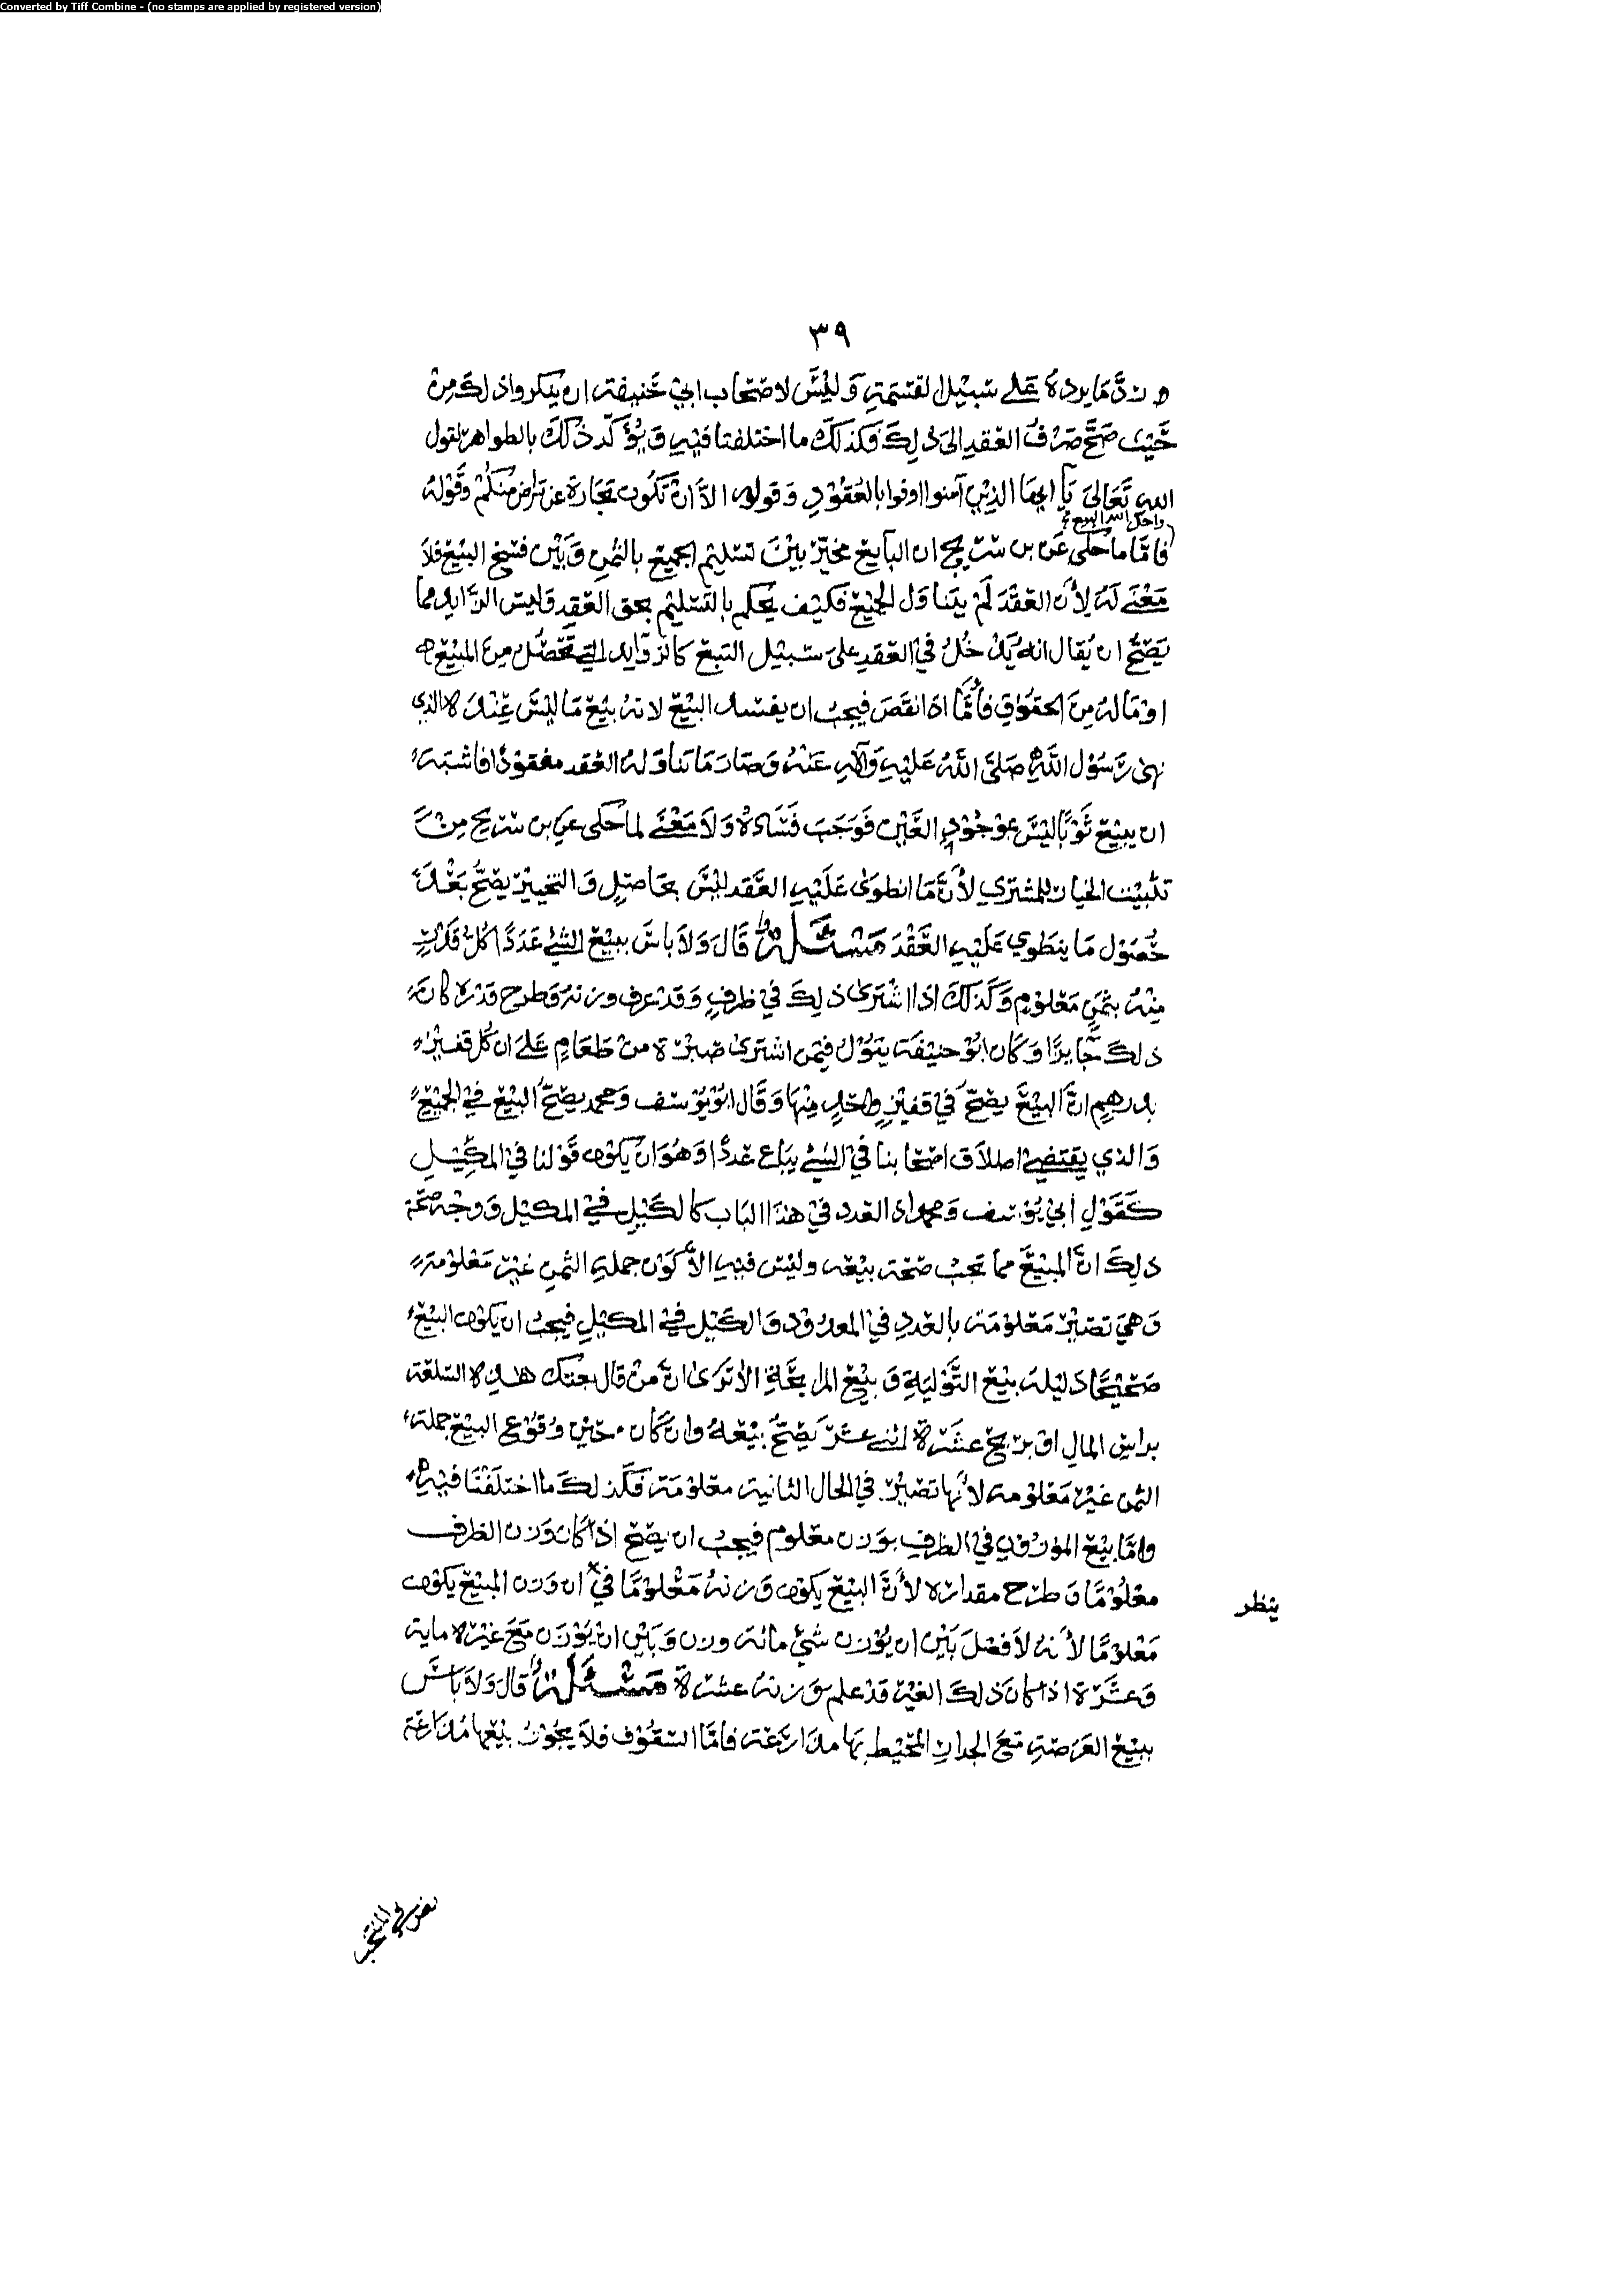 Converted by Tiff Combine - (no stamps are applied by registered version)
٣٩
ورد ما يرده على سبيل القسمة وليس لاصحاب ابي حنيفة ان ينكروا ذلك من
حيث صح صرف العقد الى ذلك فكذلك ما اختلفنا فيه ويؤكد ذلك بالظواهر لقول
الله تعالى يا ايها الذين آمنوا اوفوا بالعقود وقوله الا ان تكون تجارة عن تراض منكم وقوله
واحل الله البيع
فاما ما حكى عن بن شريح ان البايع مخير بين تسليم الجميع بالثمن وبين فسخ البيع فلا
معنى له لأن العقد لم يتناول الجميع فكيف يحكم بالتسليم بحق العقد وليس الزايد مما
يصح ان يقال انه يدخل في العقد على سبيل التبع كالزوايد التي تحصل من المبيع
او ماله من الحقوق فأما اذا نقص فيجب ان يفسد البيع لانه بيع ما ليس عنده الذي
نهى رسول الله صلى الله عليه وآله عنه وصار ما تناوله العقد مفقودا فاشبه
ان يبيع ثوبا ليس بموجود العين فوجب فساده ولا معنى لما حكى عن بن شريح من
تثبيت الخيار للمشتري لأن ما انطوى عليه العقد ليس بحاصل والتخيير يصح بعد
حصول ما ينطوي عليه العقد مسئلة قال ولا باس ببيع الشئ عددا كل قدر
منه بثمن معلوم وكذلك اذا اشترى ذلك في ظرف وقد عرف وزنه وطرح قدره كان
ذلك جايزا وكان ابو حنيفة يقول فيمن اشترى صبرة من طعام على ان كل قفيز
بدرهم ان البيع يصح في قفيز واحد منها وقال ابو يوسف ومحمد يصح البيع في الجميع
والذي يقتضي اطلاق اصحابنا في الشئ يباع عددا وهو ان يكون قولنا في المكيل
كقول أبي يوسف ومحمد اذ العدد في هذا الباب كالكيل في المكيل ووجه صحة
ذلك ان المبيع مما يجب صحة بيعه وليس فيه الا كون جملة الثمن غير معلومة
وهي تصير معلومة بالعدد في المعدود والكيل في المكيل فيجب ان يكون البيع
صحيحا دليله بيع التولية وبيع المرابحة الا ترى ان من قال بعتك هذه السلعة
براس المال او بربح عشرة اثنى عشر يصح بيعه وان كان حين وقوع البيع جملة
الثمن غير معلومة لأنها تصير في الحال الثانية معلومة فكذلك ما اختلفنا فيه
واما بيع الموزون في الظرف بوزن معلوم فيجب ان يصح اذا كان وزن الظرف
معلوما وطرح مقداره لأن البيع يكون وزنه معلوما في ان وزن المبيع يكون
ينظر
معلوما لأنه لا فصل بين ان يوزن شئ مائة وزن وبين ان يوزن مع غيره ماية
وعشرة اذا كان ذلك الغير قد علم وزنه عشرة مسئلة قال ولا باس
ببيع العرصة مع الجدار المحيط بها مذارعة فاما السقوف فلا يجوز بيعها مذارعة